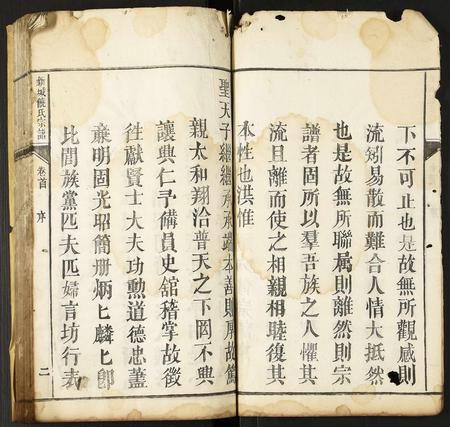 下不可止也是故無所觀感則
流匆易散而難合人情大抵然
也是故無所聯属則離然則宗
譜者固所以羣吾族之人懼其
流且離而使之相親相睦復其
本性也洪惟
聖天子繼繼承承敦本善則厚故舊
親太和翔洽普天之下罔不興
讓興仁予備員史舘稽掌故徴
徃獻賢士大夫功勲道德忠藎
秉明固光昭簡册炳匕麟匕卽
比閭族黨匹夫匹婦言坊行表
氏宗譜
卷首
序
二